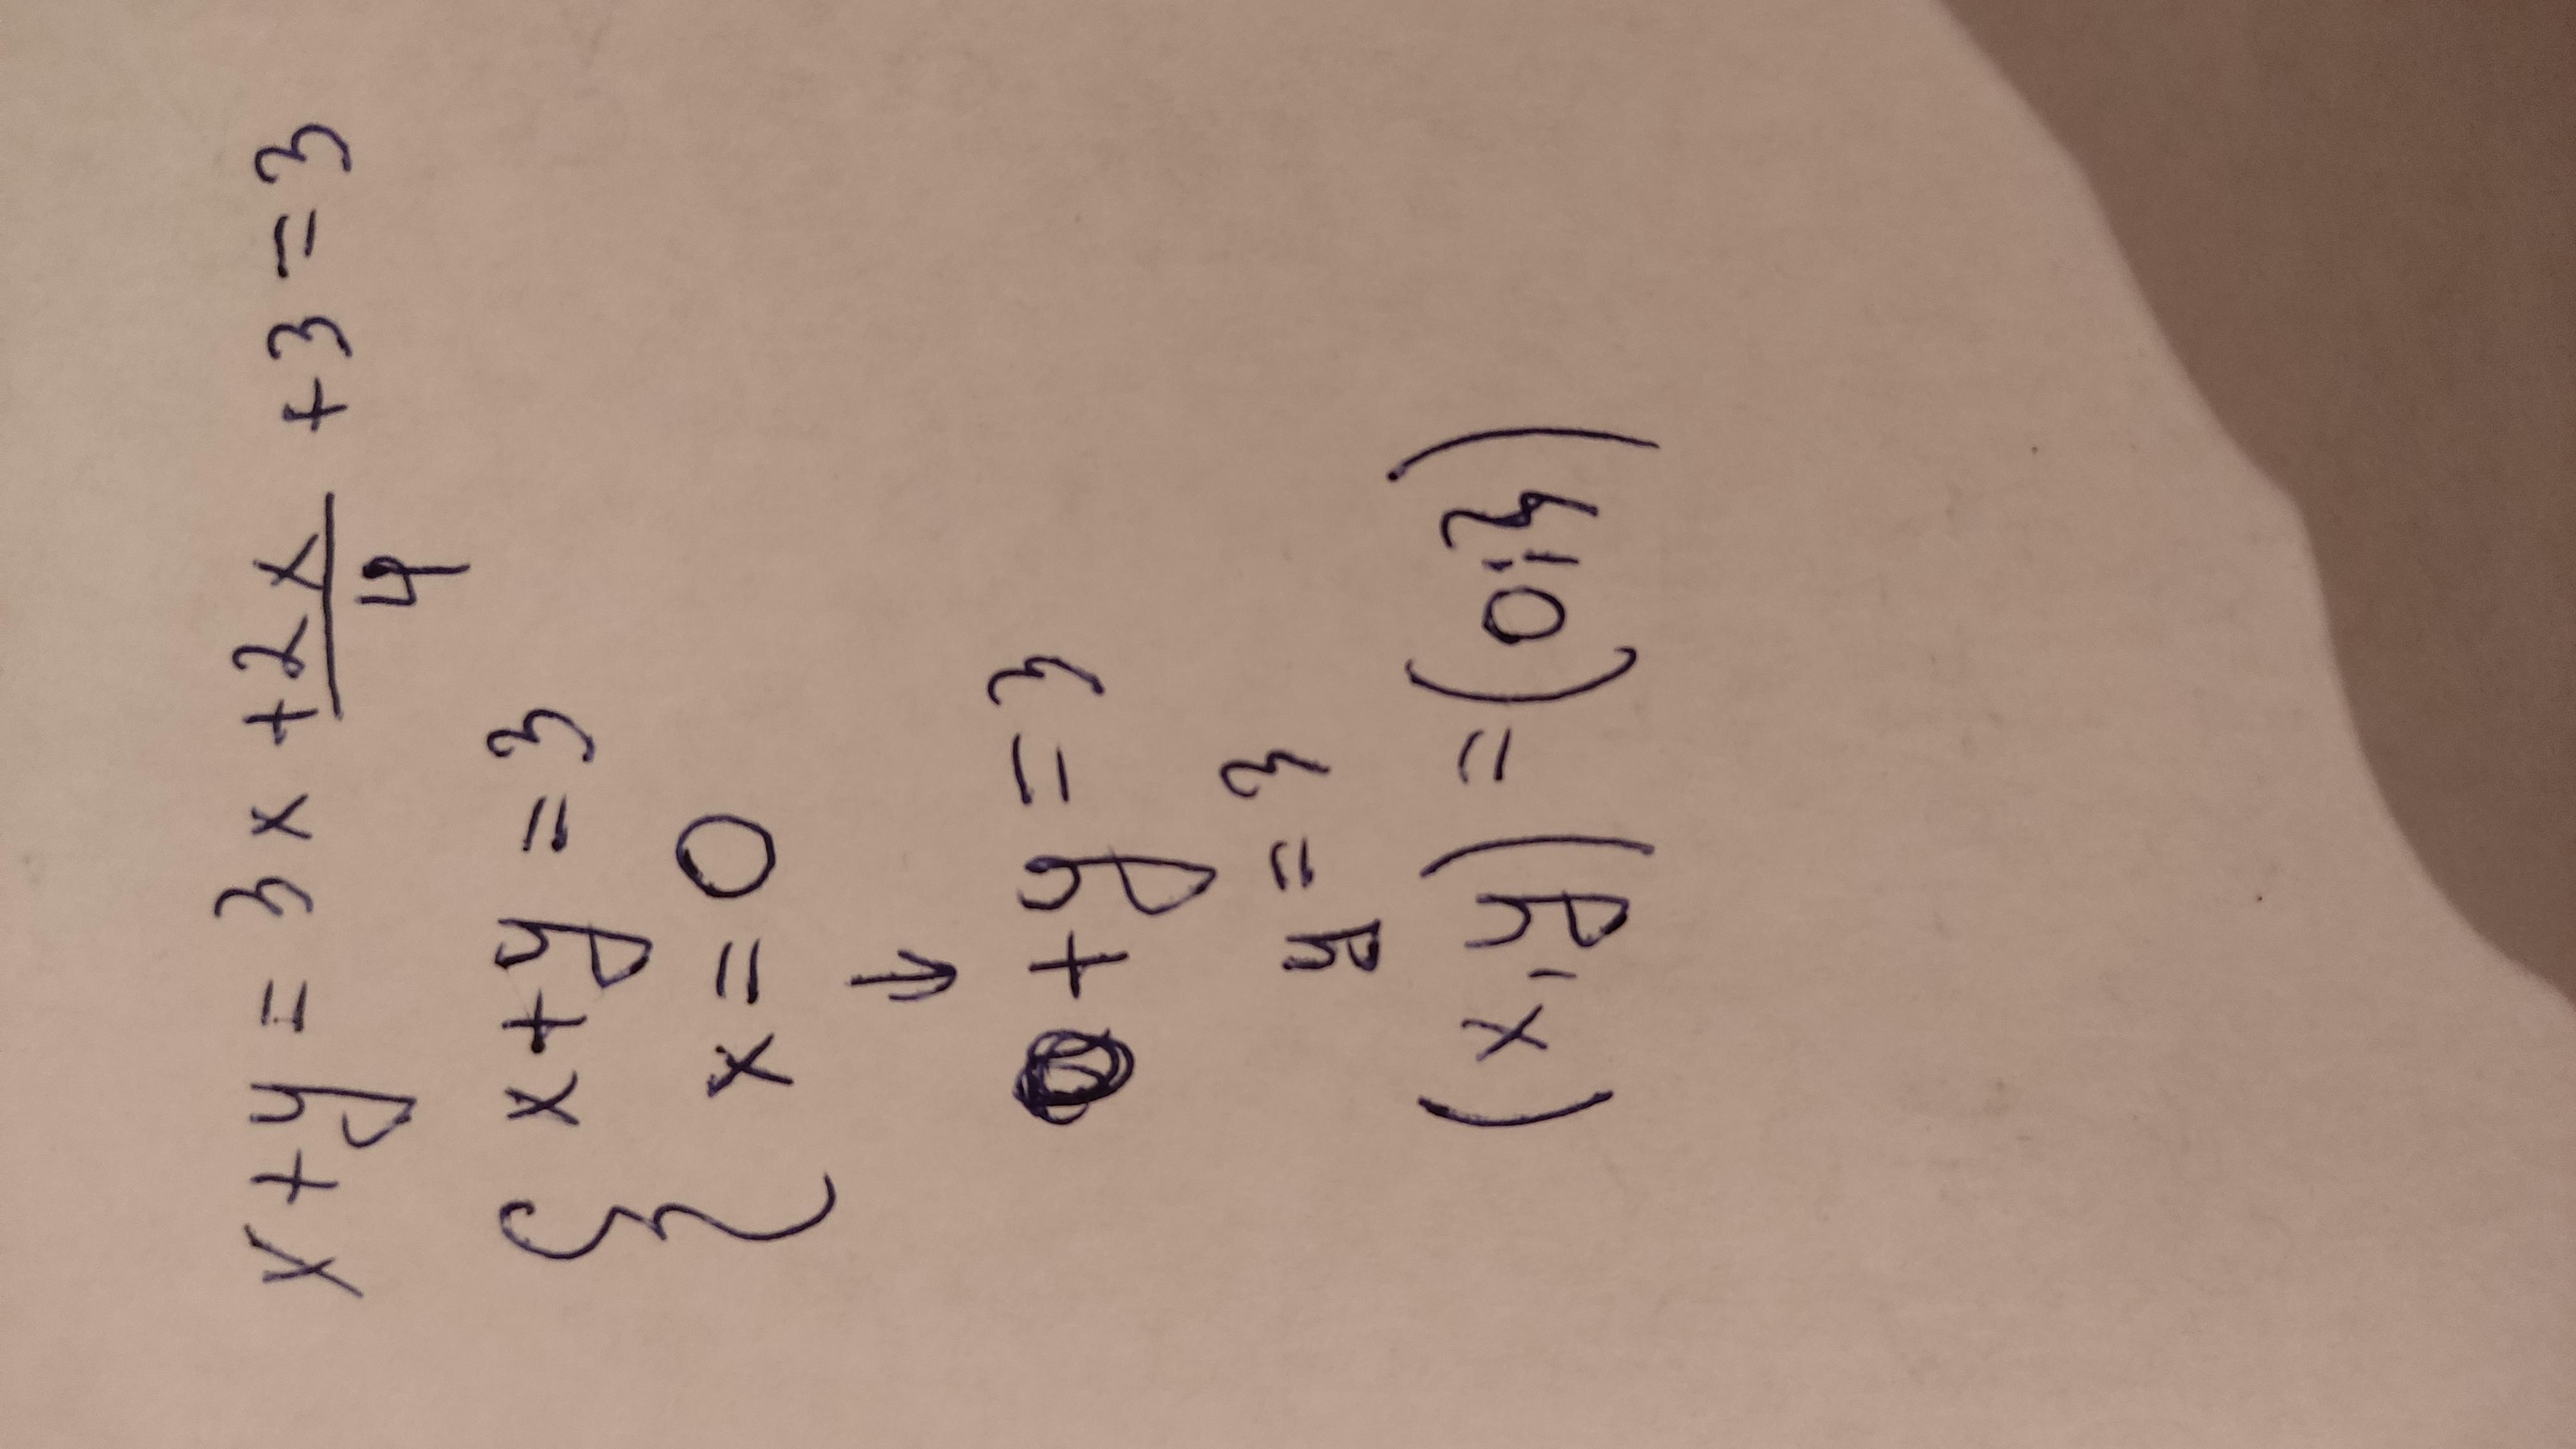 x + y = 3x + 2x/4 + 3 = 3
{ x + y = 3
x = 0
↓
0 + y = 3
y = 3
(x, y) = (0; 3)